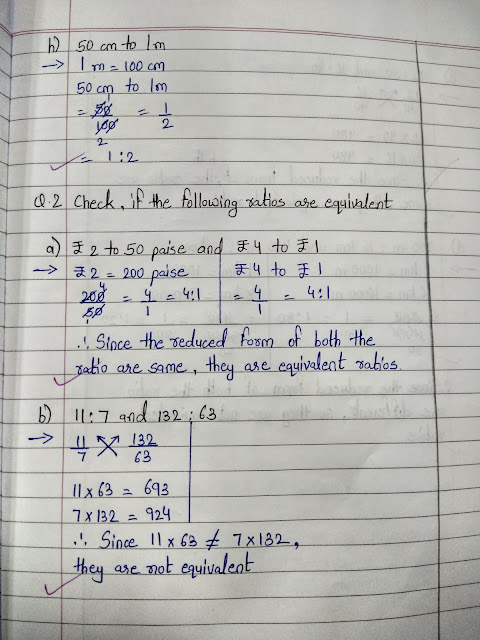 h) 50 cm to 1m
→ 1 m = 100 cm
50 cm to 1m
= 50/100 = 1/2
2
= 1:2
Q.2 Check, if the following ratios are equivalent
a) ₹2 to 50 paise and ₹4 to ₹1
→ ₹2 = 200 paise ₹4 to ₹1
200/50 = 4/1 = 4:1 = 4/1 = 4:1
∴ Since the reduced form of both the
ratio are same, they are equivalent ratios.
b) 11:7 and 132:63
→ 11/7 132/63
11 x 63 = 693
7 x 132 = 924
∴ Since 11 x 63 ≠ 7 x 132,
they are not equivalent